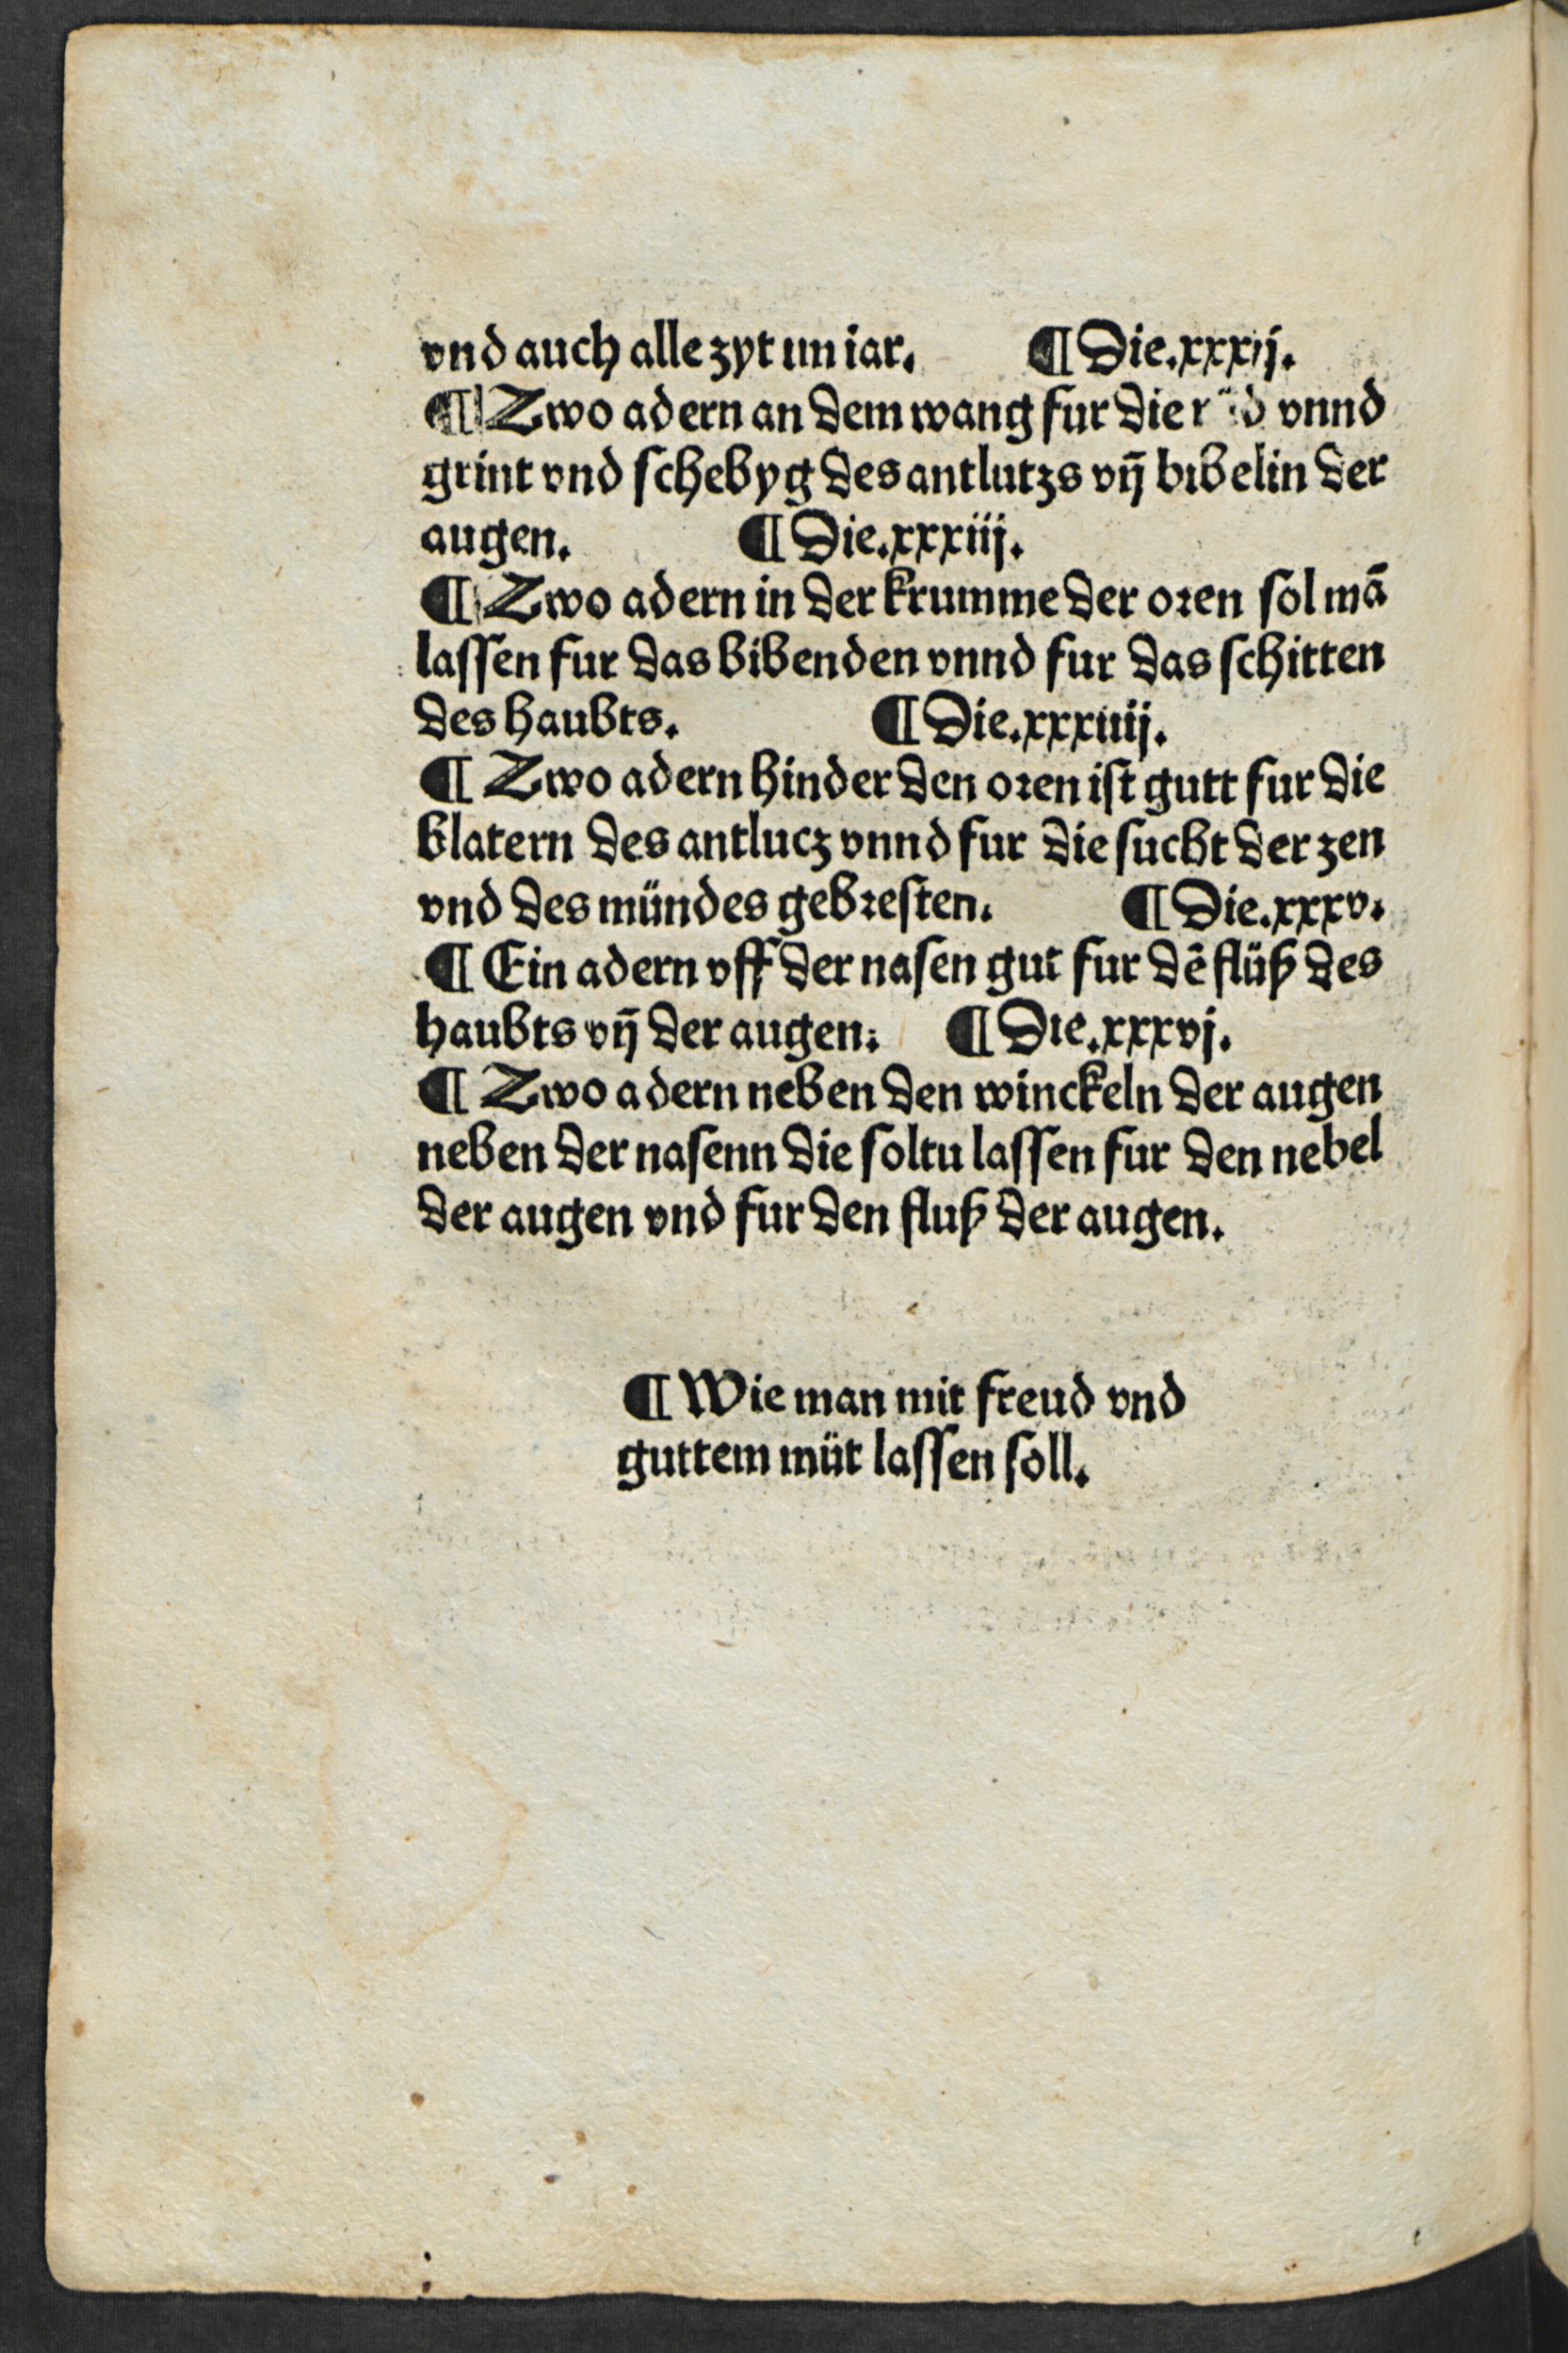 vnd auch alle zyt im iar. ¶ Die.xxxij.
¶ Zwo adern an dem wang fur die vnnd
grint vnd schebyg des antlutzs vn̄ bibelin der
augen. ¶ Die.xxxiij.
¶ Zwo adern in der krumme der oꝛen sol mā
lassen fur das bibenden vnnd fur das schitten
des haubts. ¶ Die.xxxiiij.
¶ Zwo adern hinder den oꝛen ist gutt fur die
blatern des antlucz vnnd fur die sucht der zen
vnd des mündes gebꝛesten. ¶ Die.xxxv.
¶ Ein adern vff der nasen gut fur dē flüß des
haubts vn̄ der augen: ¶ Die.xxxvj.
¶ Zwo adern neben den winckeln der augen
neben der nasenn die soltu lassen fur den nebel
der augen vnd fur den fluß der augen.
¶ Wie man mit freud vnd
guttem müt lassen soll.